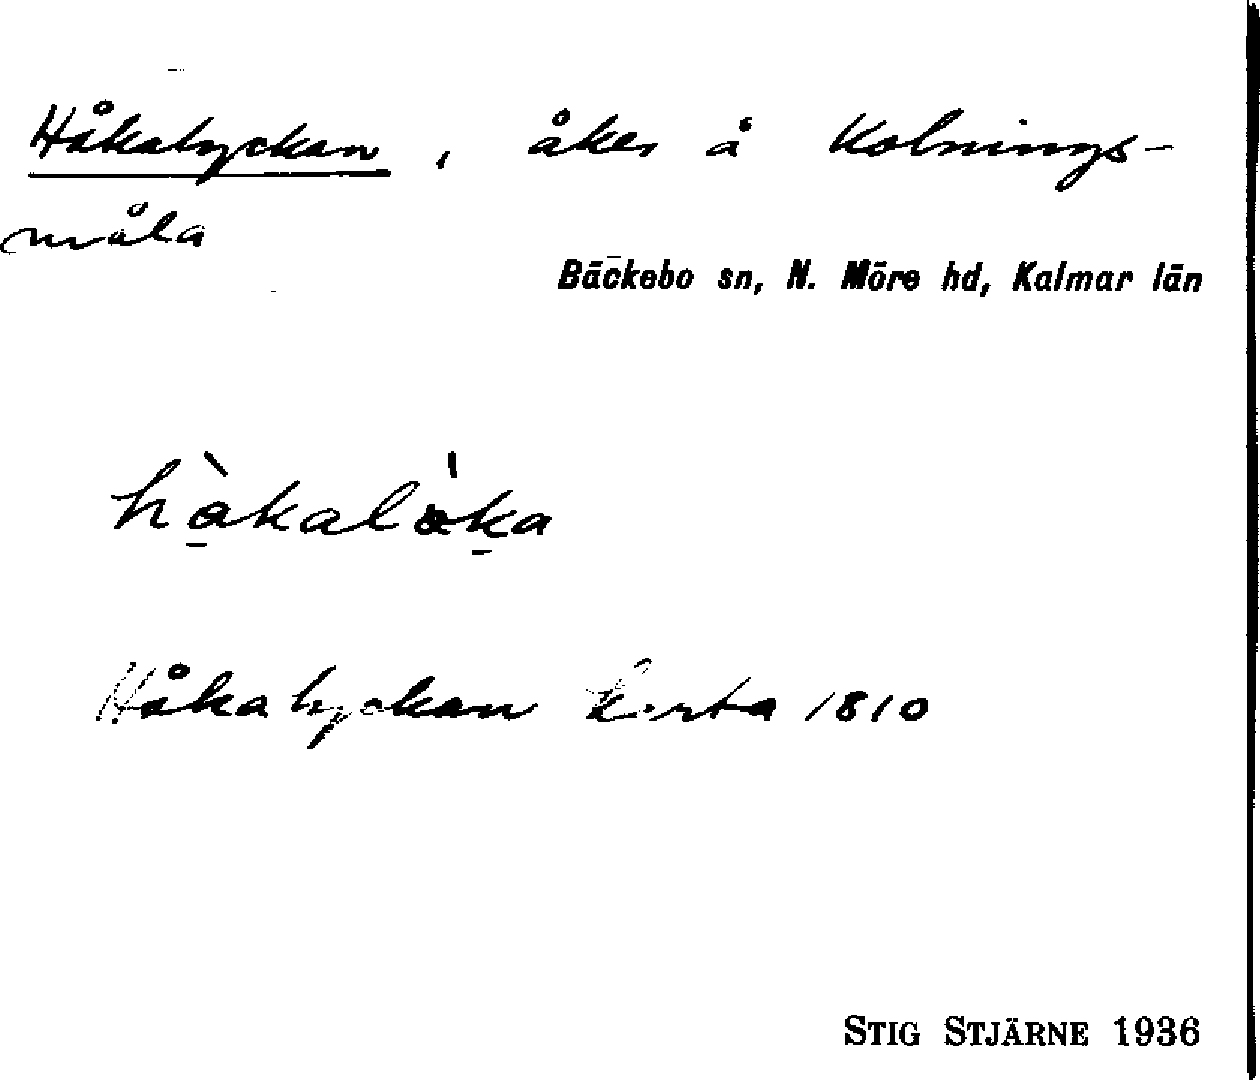 Håkalyckan, åker å Kolnings-
måla
Bäckebo sn, N. Möre hd, Kalmar län
hàkalàka
Håkalyckan karta 1810
STIG STJÄRNE 1936